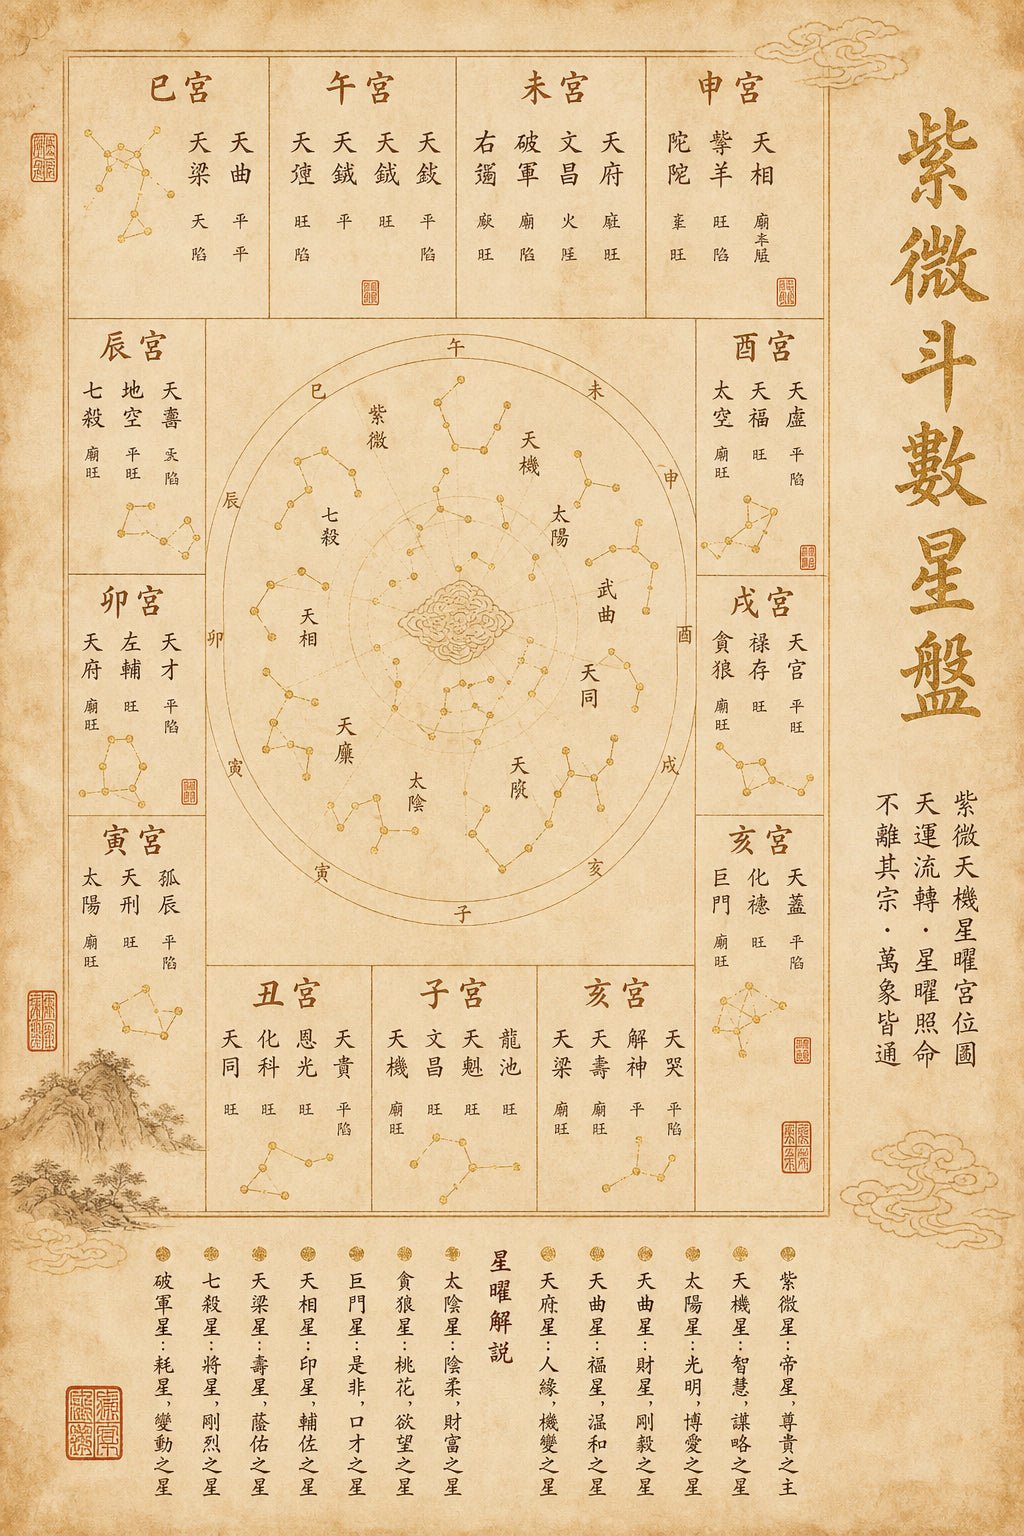 紫微斗數星盤
紫微天機星曜宮位圖
天運流轉・星曜照命
不離其宗・萬象皆通
巳宮
天梁 天曲
天 平
陷 平
午宮
天 天鉞 天鉞 天
旺 平 旺 平
陷 陷
未宮
右 破軍 文昌 天府
廟 火
旺 陷 旺
申宮
陀 羊 天相
旺 廟
旺 陷
辰宮
七殺 地空 天
廟旺 平旺 陷
酉宮
太空 天福 天虛
廟旺 旺 平陷
卯宮
天府 左輔 天才
廟旺 旺 平陷
戌宮
貪狼 祿存 天宮
廟旺 旺 平旺
寅宮
太陽 天刑 孤辰
廟旺 旺 平陷
亥宮
巨門 化 天蓋
廟旺 旺 平陷
丑宮
天同 化科 恩光 天貴
旺 旺 旺 平陷
子宮
天機 文昌 天魁 龍池
廟旺 旺 旺 旺
亥宮
天梁 天壽 解神 天哭
廟旺 廟旺 平 平陷
午
未
申
酉
戌
亥
子
寅
寅
卯
辰
巳
紫微
天機
七殺
太陽
武曲
天相
天同
天
太陰
天
紫微星：帝星，尊貴之主
天機星：智慧，謀略之星
太陽星：光明，博愛之星
天曲星：財星，剛毅之星
天曲星：福星，温和之星
天府星：人緣，機變之星
星曜解説
太陰星：陰柔，財富之星
貪狼星：桃花，欲望之星
巨門星：是非，口才之星
天相星：印星，輔佐之星
天梁星：壽星，蔭佑之星
七殺星：將星，剛烈之星
破軍星：耗星，變動之星